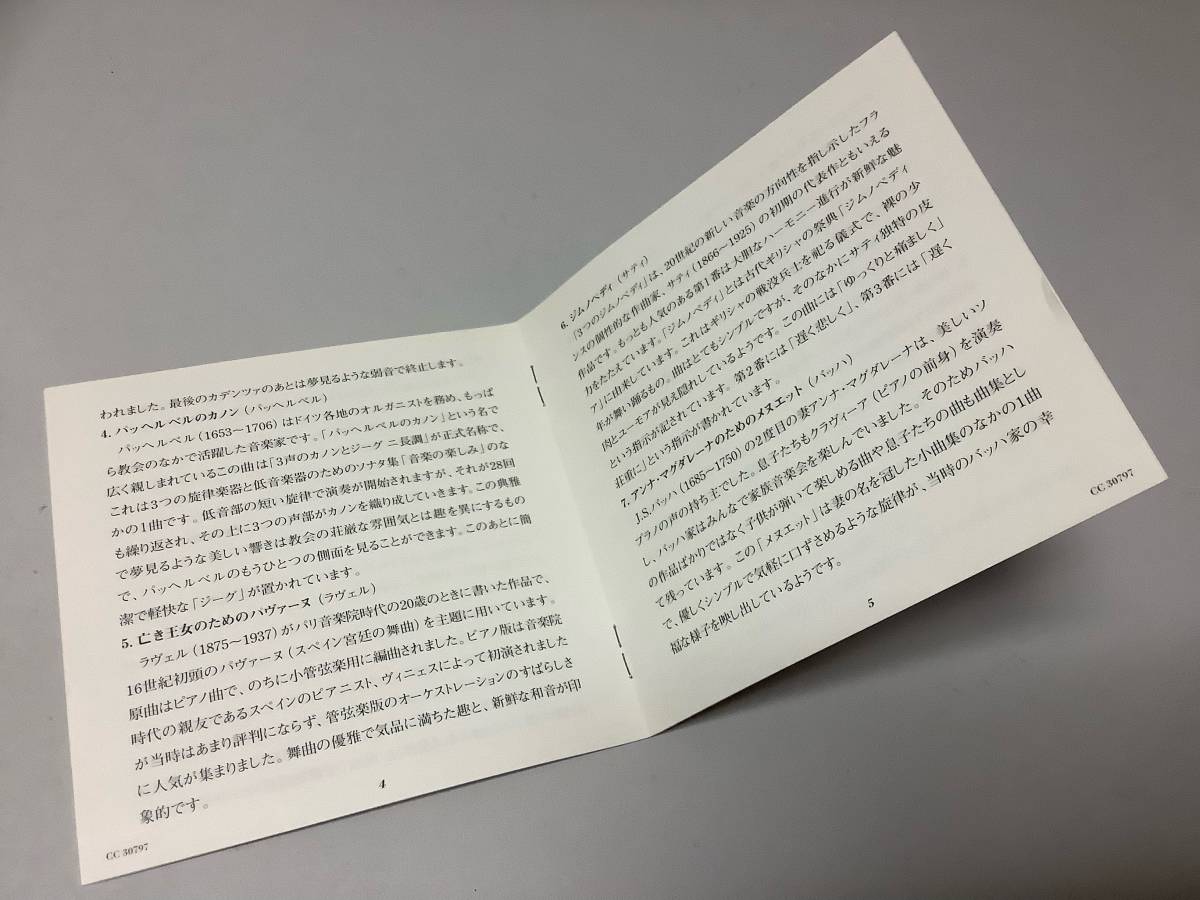 われました。最後のカデンツァのあとは夢見るような弱音で終止します。
4. パッヘルベルのカノン（パッヘルベル）
パッヘルベル（1653～1706）はドイツ各地のオルガニストを務め、もっぱ
ら教会のなかで活躍した音楽家です。「パッヘルベルのカノン」という名で
広く親しまれているこの曲は「3声のカノンとジーグ ニ長調」が正式名称で、
これは3つの旋律楽器と低音楽器のためのソナタ集「音楽の楽しみ」のな
かの1曲です。低音部の短い旋律で演奏が開始されますが、それが28回
も繰り返され、その上に3つの声部がカノンを織り成していきます。この典雅
で夢見るような美しい響きは教会の荘厳な雰囲気とは趣を異にするもの
で、パッヘルベルのもうひとつの側面を見ることができます。このあとに簡
潔で軽快な「ジーグ」が置かれています。
5. 亡き王女のためのパヴァーヌ（ラヴェル）
ラヴェル（1875～1937）がパリ音楽院時代の20歳のときに書いた作品で、
16世紀初頭のパヴァーヌ（スペイン宮廷の舞曲）を主題に用いています。
原曲はピアノ曲で、のちに小管弦楽用に編曲されました。ピアノ版は音楽院
時代の親友であるスペインのピアニスト、ヴィニェスによって初演されました
が当時はあまり評判にならず、管弦楽版のオーケストレーションのすばらしさ
に人気が集まりました。舞曲の優雅で気品に満ちた趣と、新鮮な和音が印
象的です。
4
CC 30797
6. ジムノペディ（サティ）
「3つのジムノペディ」は、20世紀の新しい音楽の方向性を指し示したフラ
ンスの個性的な作曲家、サティ（1866～1925）の初期の代表作ともいえる
作品です。もっとも人気のある第1番は大胆なハーモニー進行が新鮮な魅
力をたたえています。「ジムノペディ」とは古代ギリシャの祭典「ジムノペディ
ア」に由来しています。これはギリシャの戦没兵士を祀る儀式で、裸の少
年が舞り踊るもの。曲はとてもシンプルですが、そのなかにサティ独特の皮
肉とユーモアが見え隠れしているようです。この曲には「ゆっくりと痛ましく」
という指示が記されています。第2番には「遅く悲しく」、第3番には「遅く
荘重に」という指示が書かれています。
7. アンナ・マグダレーナのためのメヌエット（バッハ）
J.S.バッハ（1685～1750）の2度目の妻アンナ・マグダレーナは、美しいソ
プラノの声の持ち主でした。息子たちもクラヴィーア（ピアノの前身）を演奏
し、バッハ家はみんなで家族音楽会を楽しんでいました。そのためバッハ
の作品ばかりではなく子供が弾いて楽しめる曲や息子たちの曲も曲集とし
て残っています。この「メヌエット」は妻の名を冠した小曲集のなかの1曲
で、優しくシンプルで気軽に口ずさめるような旋律が、当時のバッハ家の幸
福な様子を映し出しているようです。
5
CC 30797